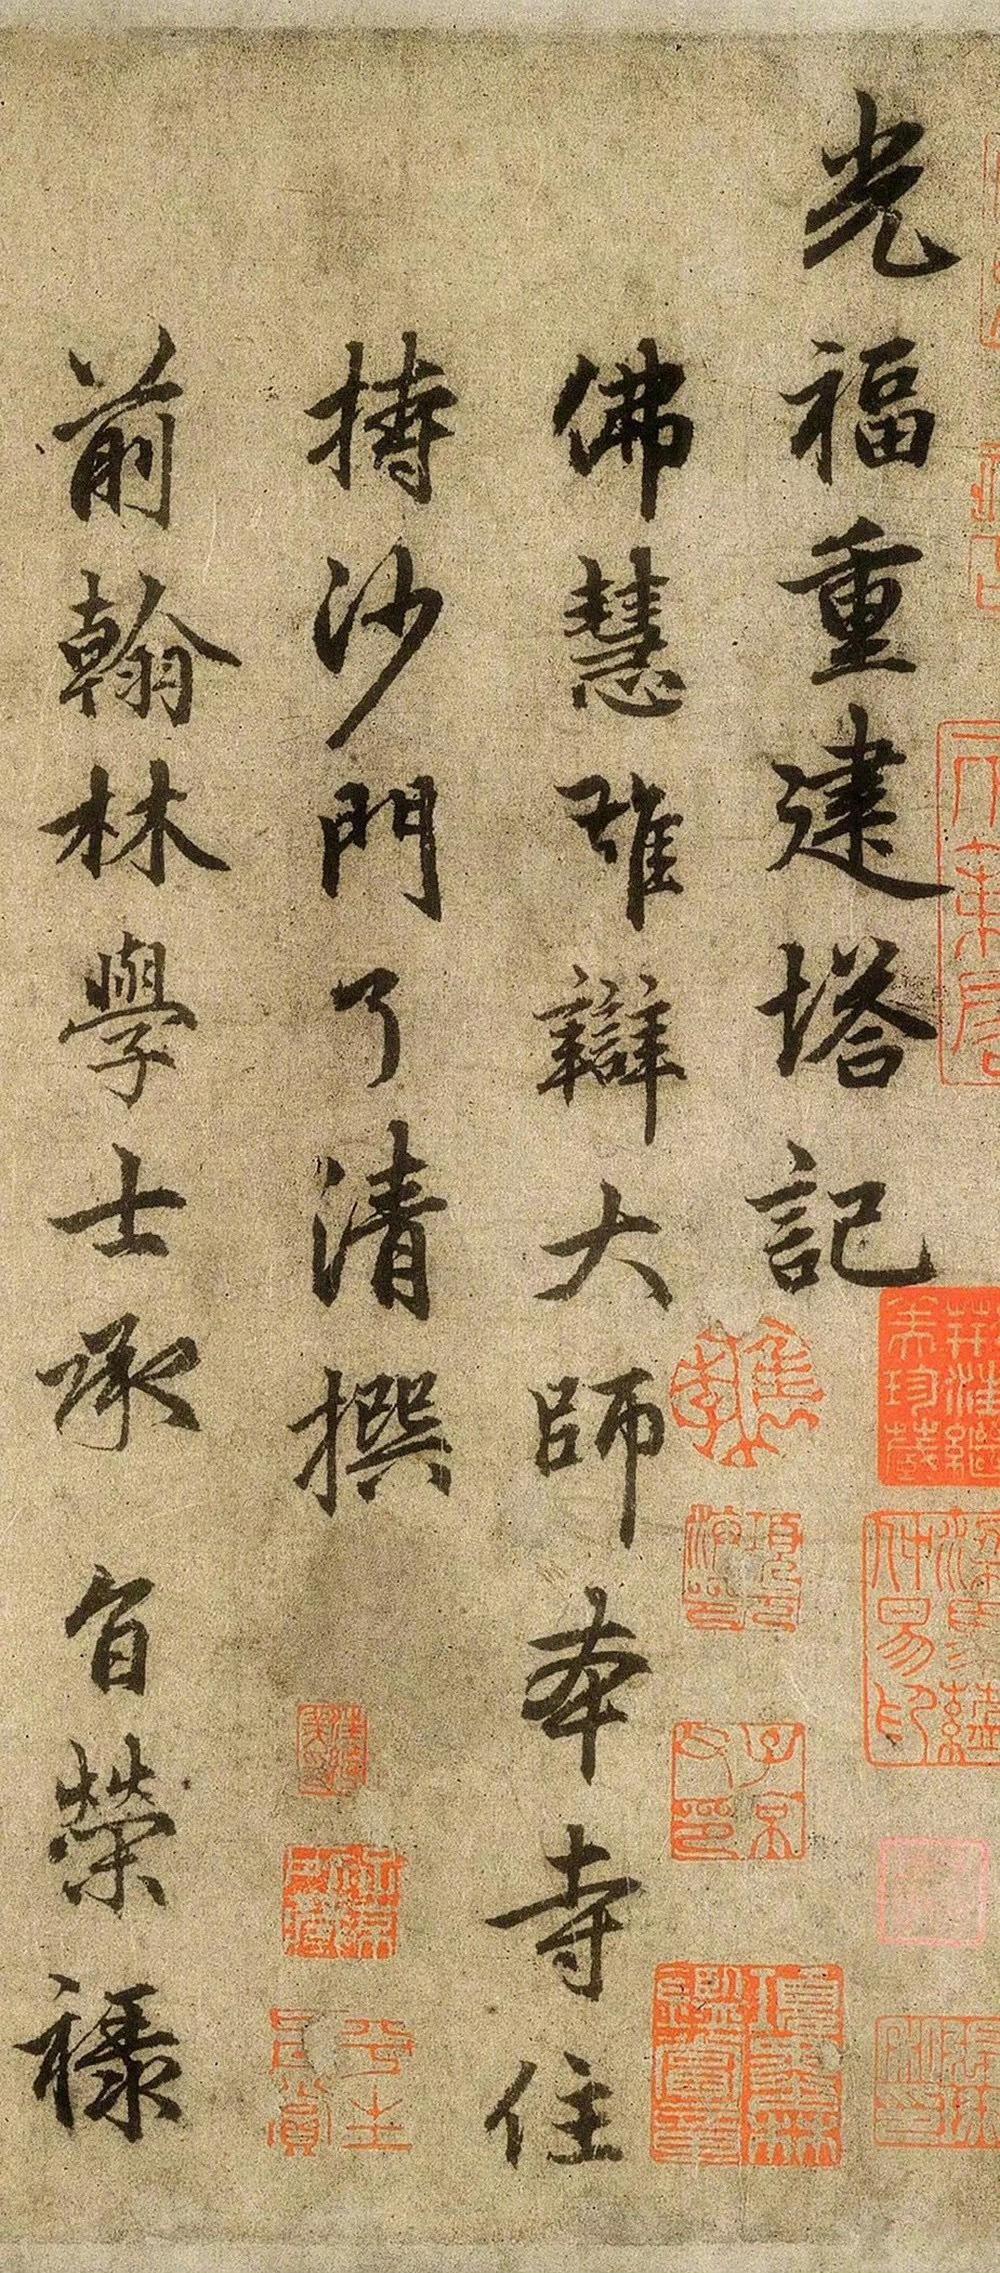 光福重建塔記
佛慧雄辯大師本寺住
持沙門了清撰
前翰林學士承旨榮祿